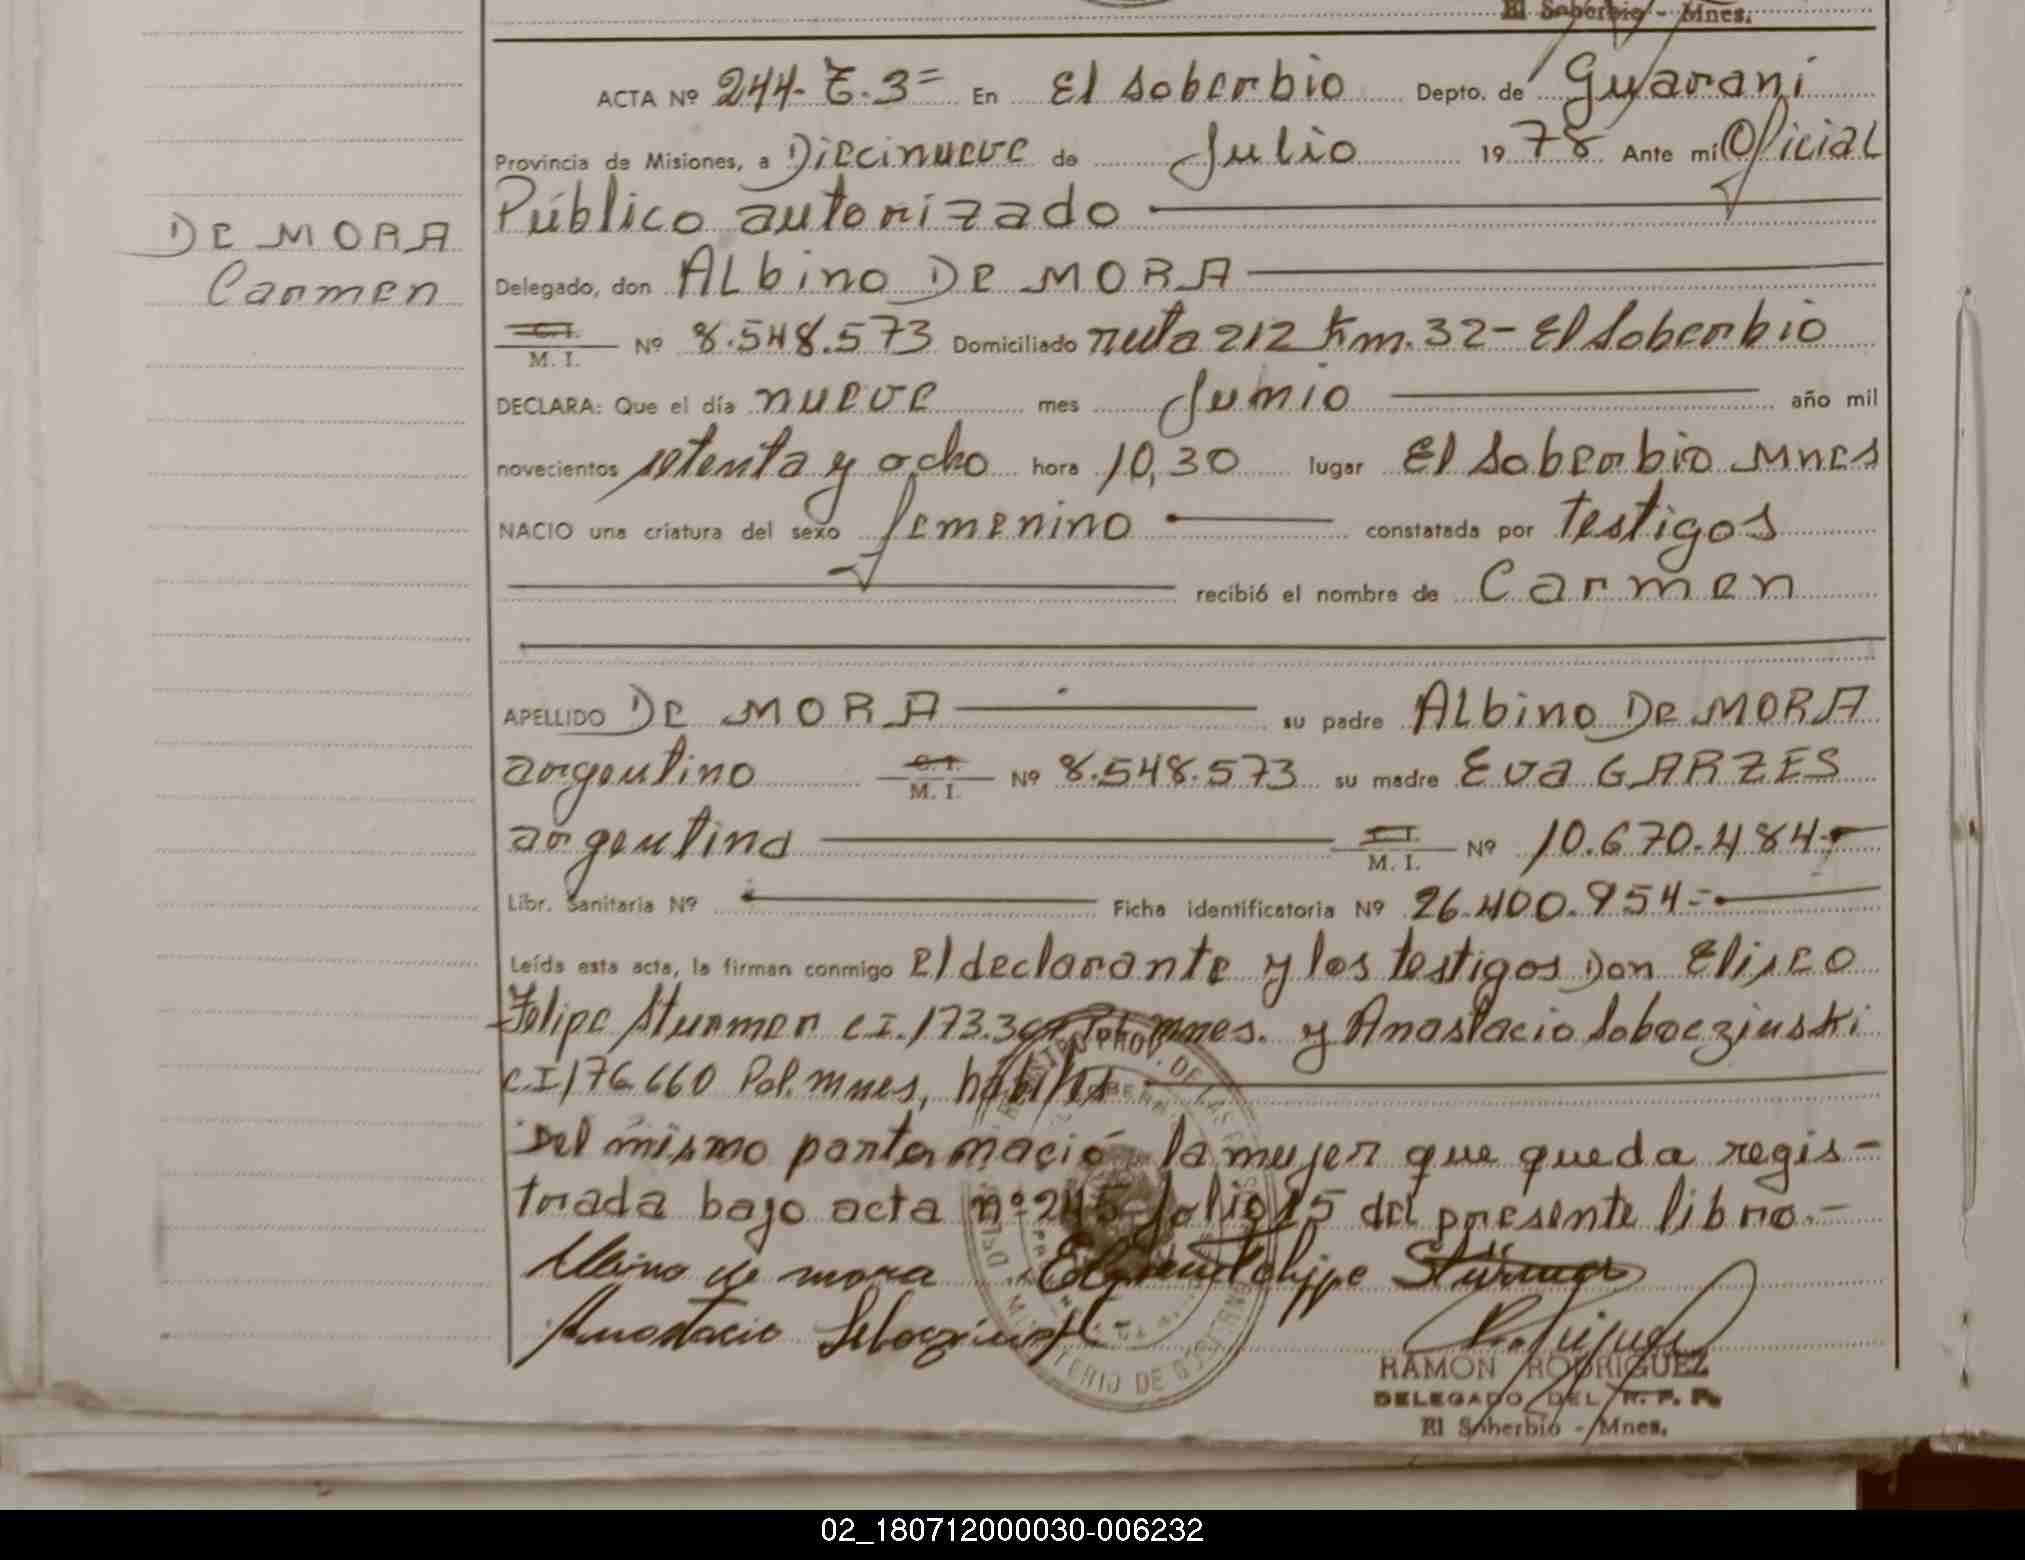 El Soberbio - Mnes.
ACTA Nº 244- T. 3= En El Soberbio Depto. de Guarani
Provincia de Misiones, a Diecinueve de Julio 1978 Ante mi Oficial
Público autorizado
DE MORA
Carmen
Delegado, don ALbino DE MORA
C. I.
M. I. Nº 8.548.573 Domiciliado ruta 212 Km. 32 - El Soberbio
DECLARA: Que el día nueve mes Junio año mil
novecientos setenta y ocho hora 10,30 lugar El Soberbio Mnes
NACIO una criatura del sexo femenino constatada por testigos
recibió el nombre de Carmen
APELLIDO DE MORA su padre ALbino DE MORA
argentino C. I.
M. I. Nº 8.548.573 su madre Eva GARZES
argentina C. I.
M. I. Nº 10.670.484-
Libr. Sanitaria Nº Ficha identificatoria Nº 26.400.954=
Leída esta acta, la firman conmigo El declarante y los testigos Don Eliseo
Felipe Sturmer C.I. 173.3 Pol. Mnes. y Anastacio Soboczinski
C.I 176.660 Pol. Mnes, habiles
Del mismo parto nació la mujer que queda regis-
trada bajo acta nº 245 folio 15 del presente libro.-
Albino de mora Felippe Stürmer
Anastacio Soboczinski
MINISTERIO DE GOBIERNO
RAMON RODRIGUEZ
DELEGADO DEL R. P. P.
El Soberbio - Mnes.
02_180712000030-006232